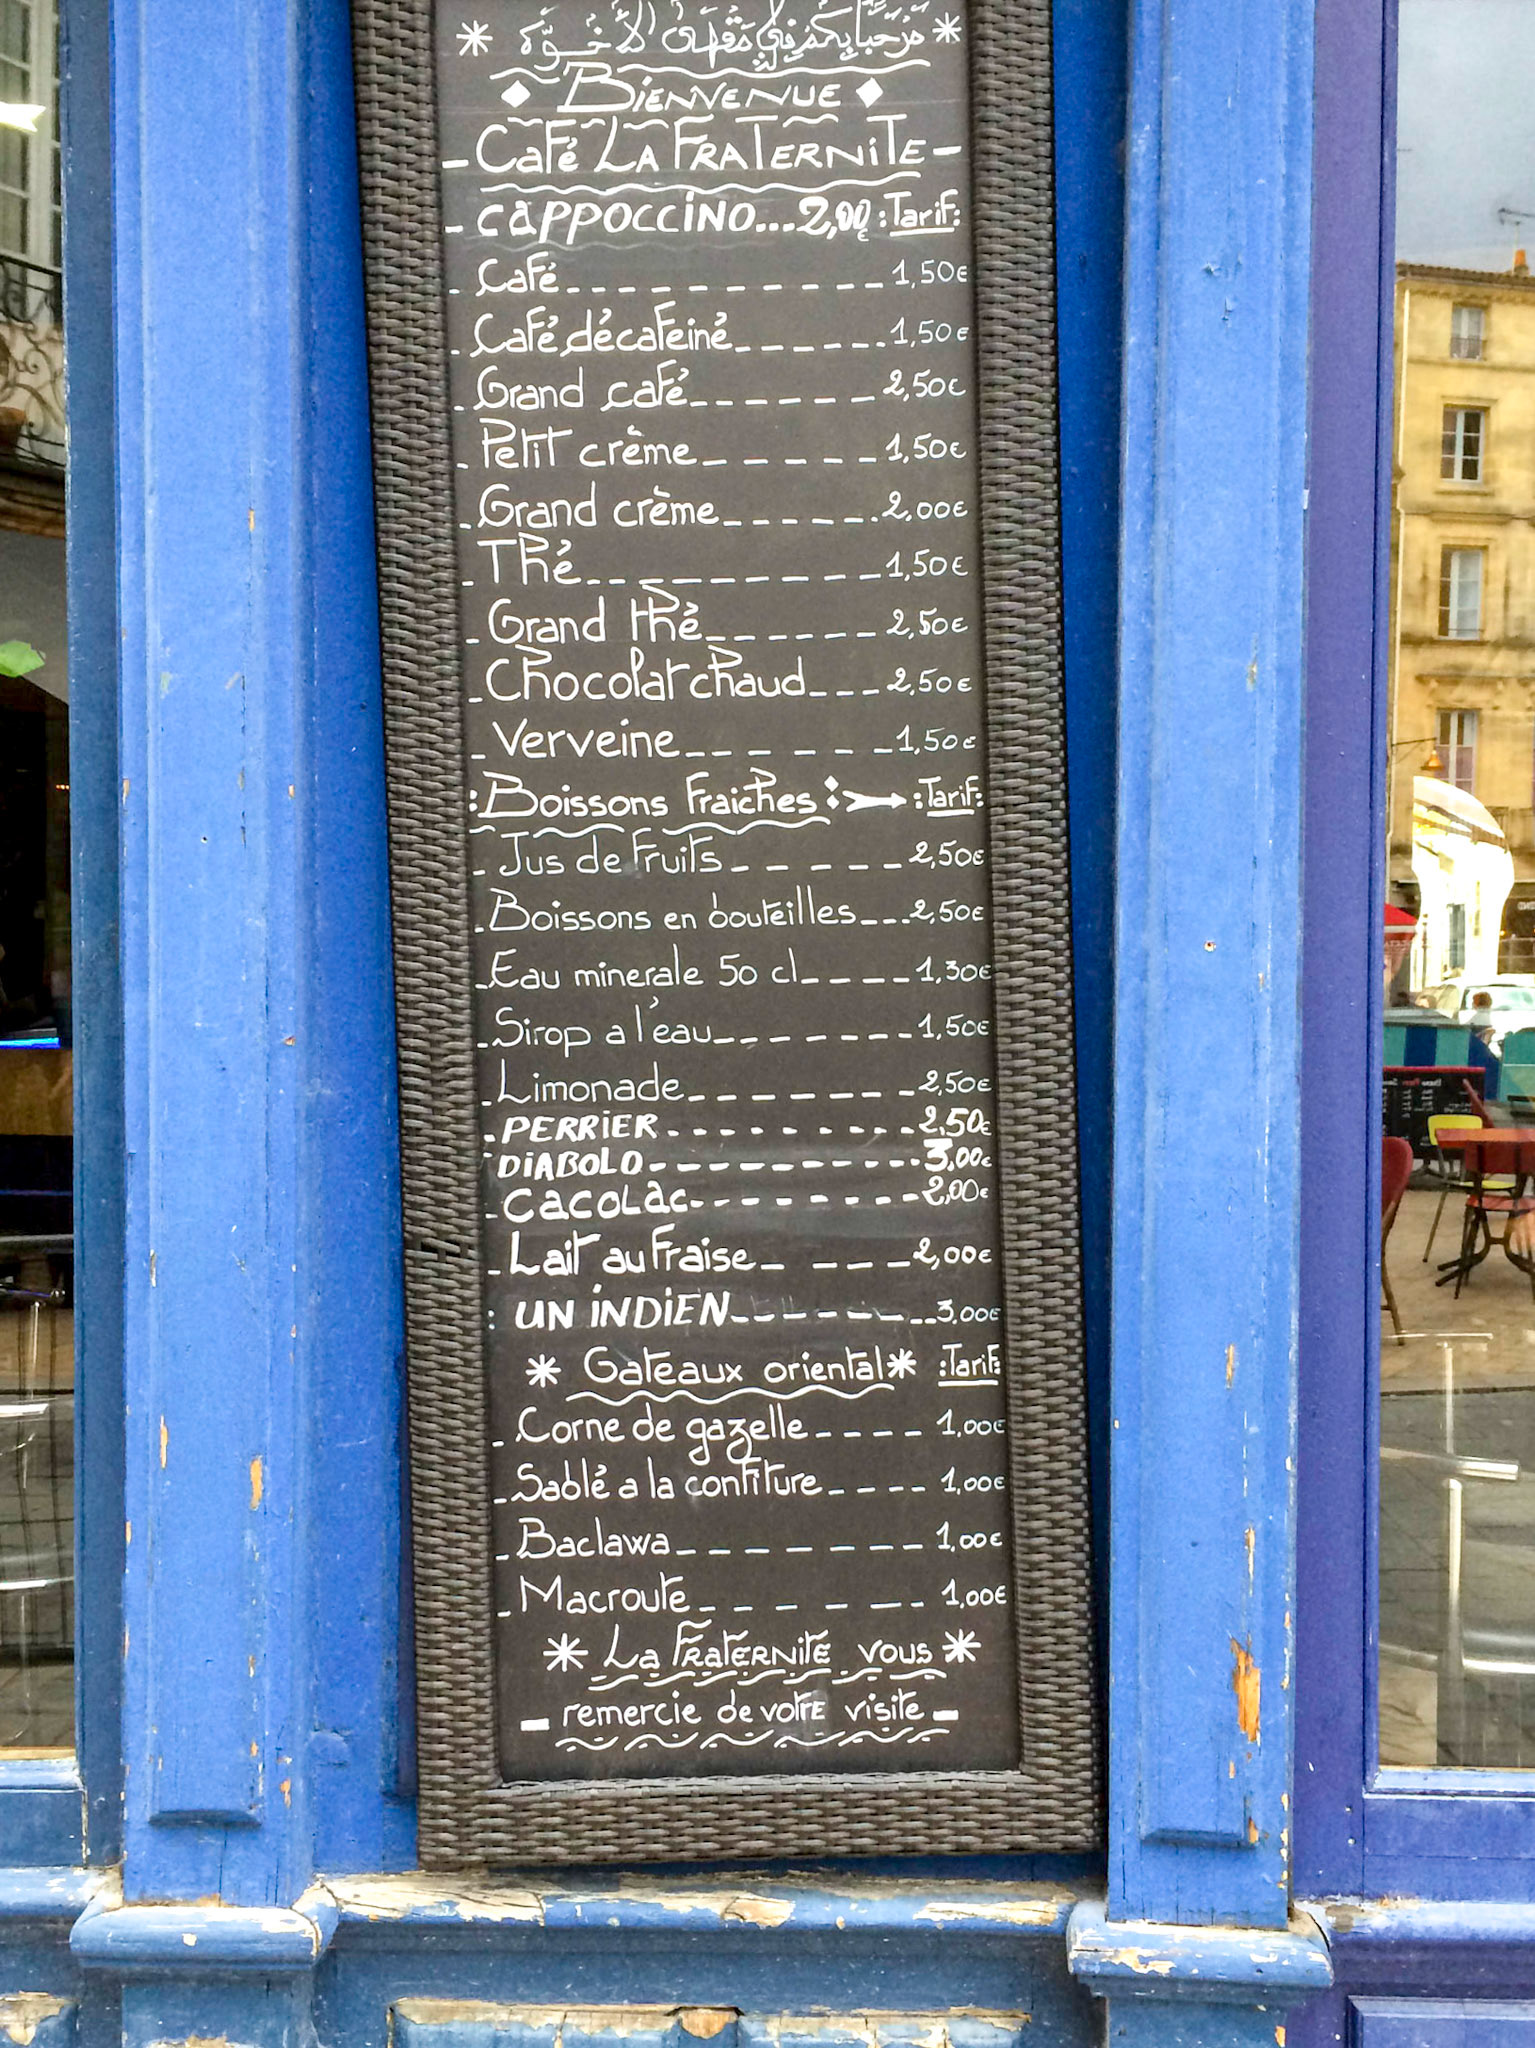 * مَرْحَبًا بِكُمْ فِي مَقْهَى الأُخُوَّة *
Bienvenue
- Café La Fraternite -
- cappoccino...2,00€ :Tarif:
- Café __________ 1,50€
- Café décafeiné ______ 1,50€
- Grand café ______ 2,50€
- Petit crème ______ 1,50€
- Grand crème ______ 2.00€
- Thé __________ 1,50€
- Grand thé ______ 2,50€
- Chocolat chaud ___ 2,50€
- Verveine ______ 1,50€
:Boissons Fraiches: :Tarif:
- Jus de Fruits ______ 2,50€
- Boissons en bouteilles ___ 2,50€
- Eau minerale 50 cl ____ 1,30€
- Sirop a l'eau ________ 1,50€
- Limonade ________ 2,50€
- PERRIER ........ 2,50€
- DiABOLO ---------- 3,00€
- cacolac -------- 2,00€
- Lait au Fraise ____ 2,00€
: UN iNDiEN ------- 3,00€
* Gateaux oriental * :Tarif:
- Corne de gazelle ____ 1,00€
- Sablé a la confiture ____ 1,00€
- Baclawa _______ 1,00€
- Macroute ______ 1,00€
* La Fraternite vous *
- remercie de votre visite -